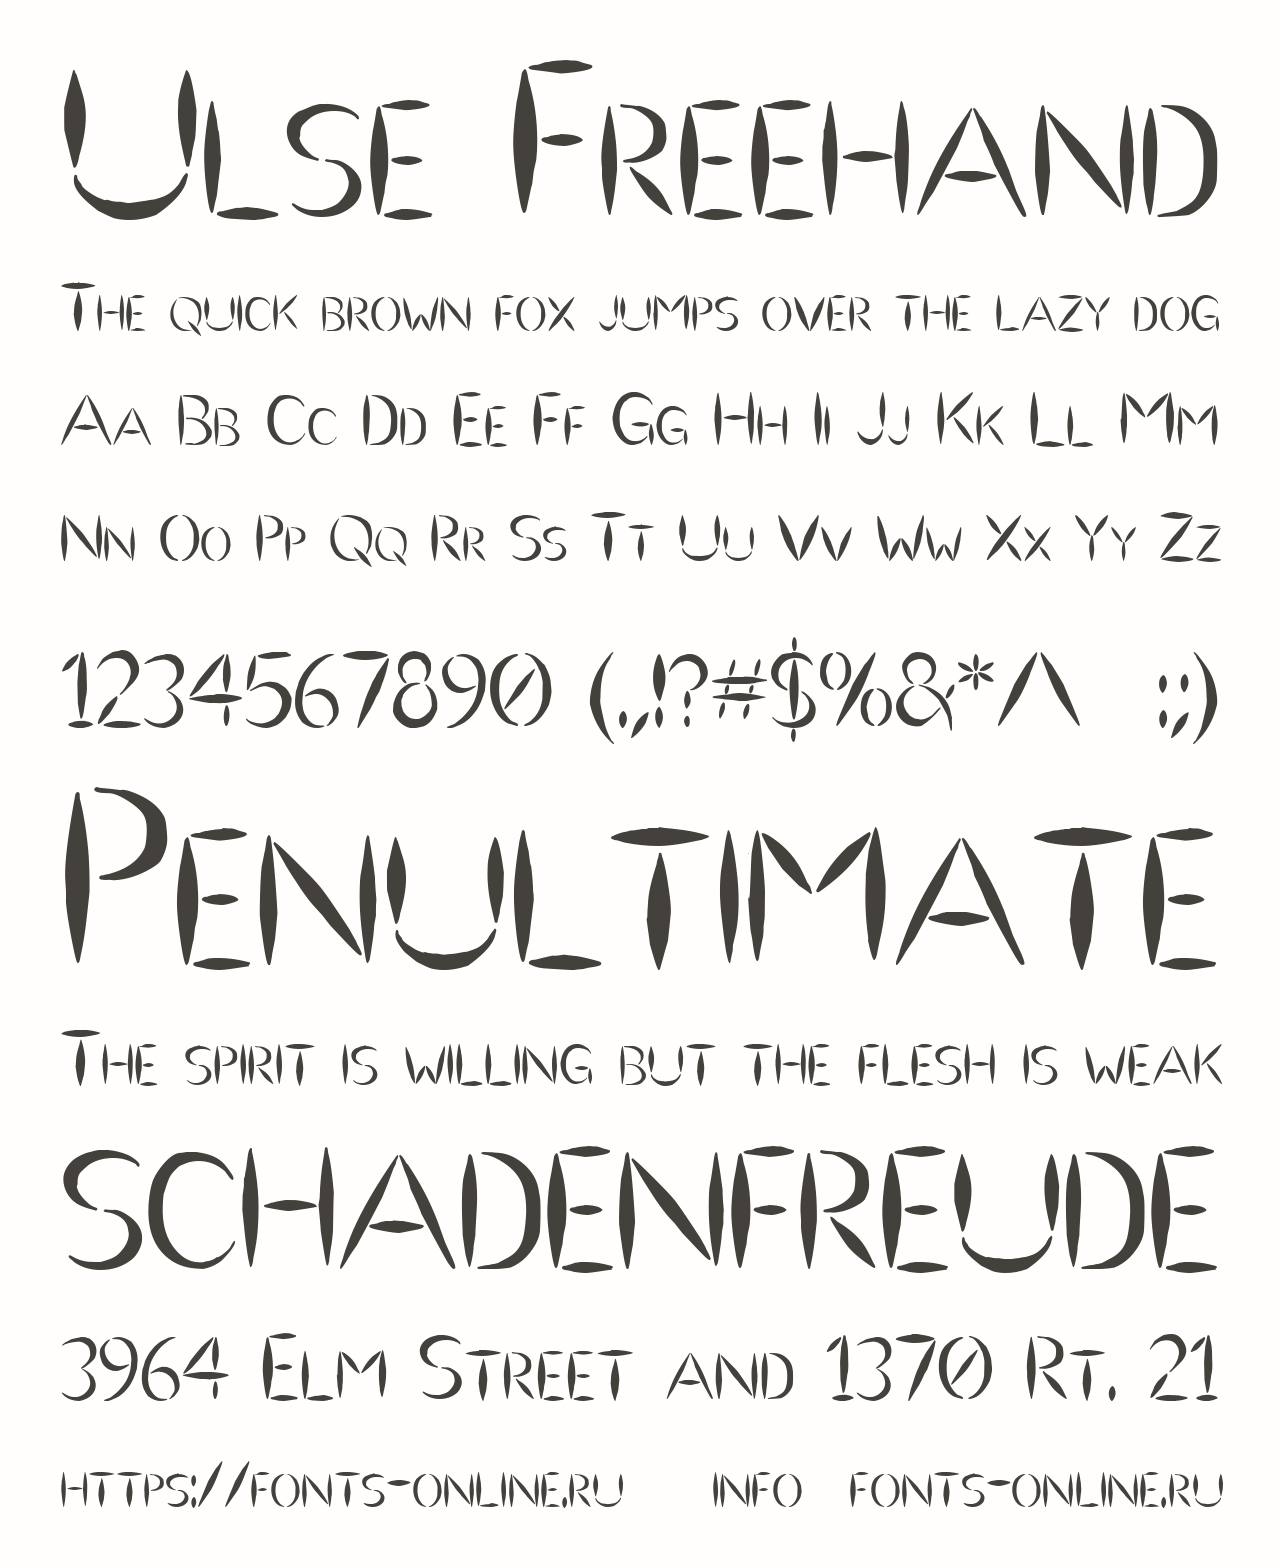 Ulse Freehand
The quick brown fox jumps over the lazy dog
Aa Bb Cc Dd Ee Ff Gg Hh Ii Jj Kk Ll Mm
Nn Oo Pp Qq Rr Ss Tt Uu Vv Ww Xx Yy Zz
1234567890 (.,!?#$%&*^ :;)
Penultimate
The spirit is willing but the flesh is weak
schadenfreude
3964 Elm Street and 1370 Rt. 21
https://fonts-online.ru info fonts-online.ru